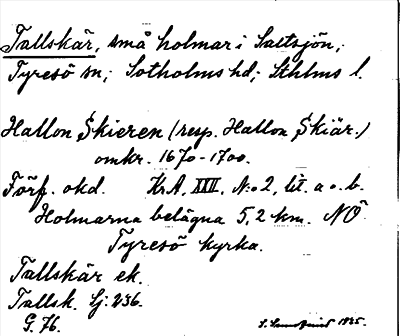 Tallskär, små holmar i Saltsjön,
Tyresö sn; Sotholms hd; Sthlms l.
Hallon Skieren (resp. Hallon Skiär.)
omkr. 1670-1700.
Förf. okd. Kr.A. XXII, N:o 2, lit. a o. b.
Holmarna belägna 5,2 km. NÖ
Tyresö kyrka.
Tallskär ek.
Tallsk. Lj: 236.
G. 76.
1925.